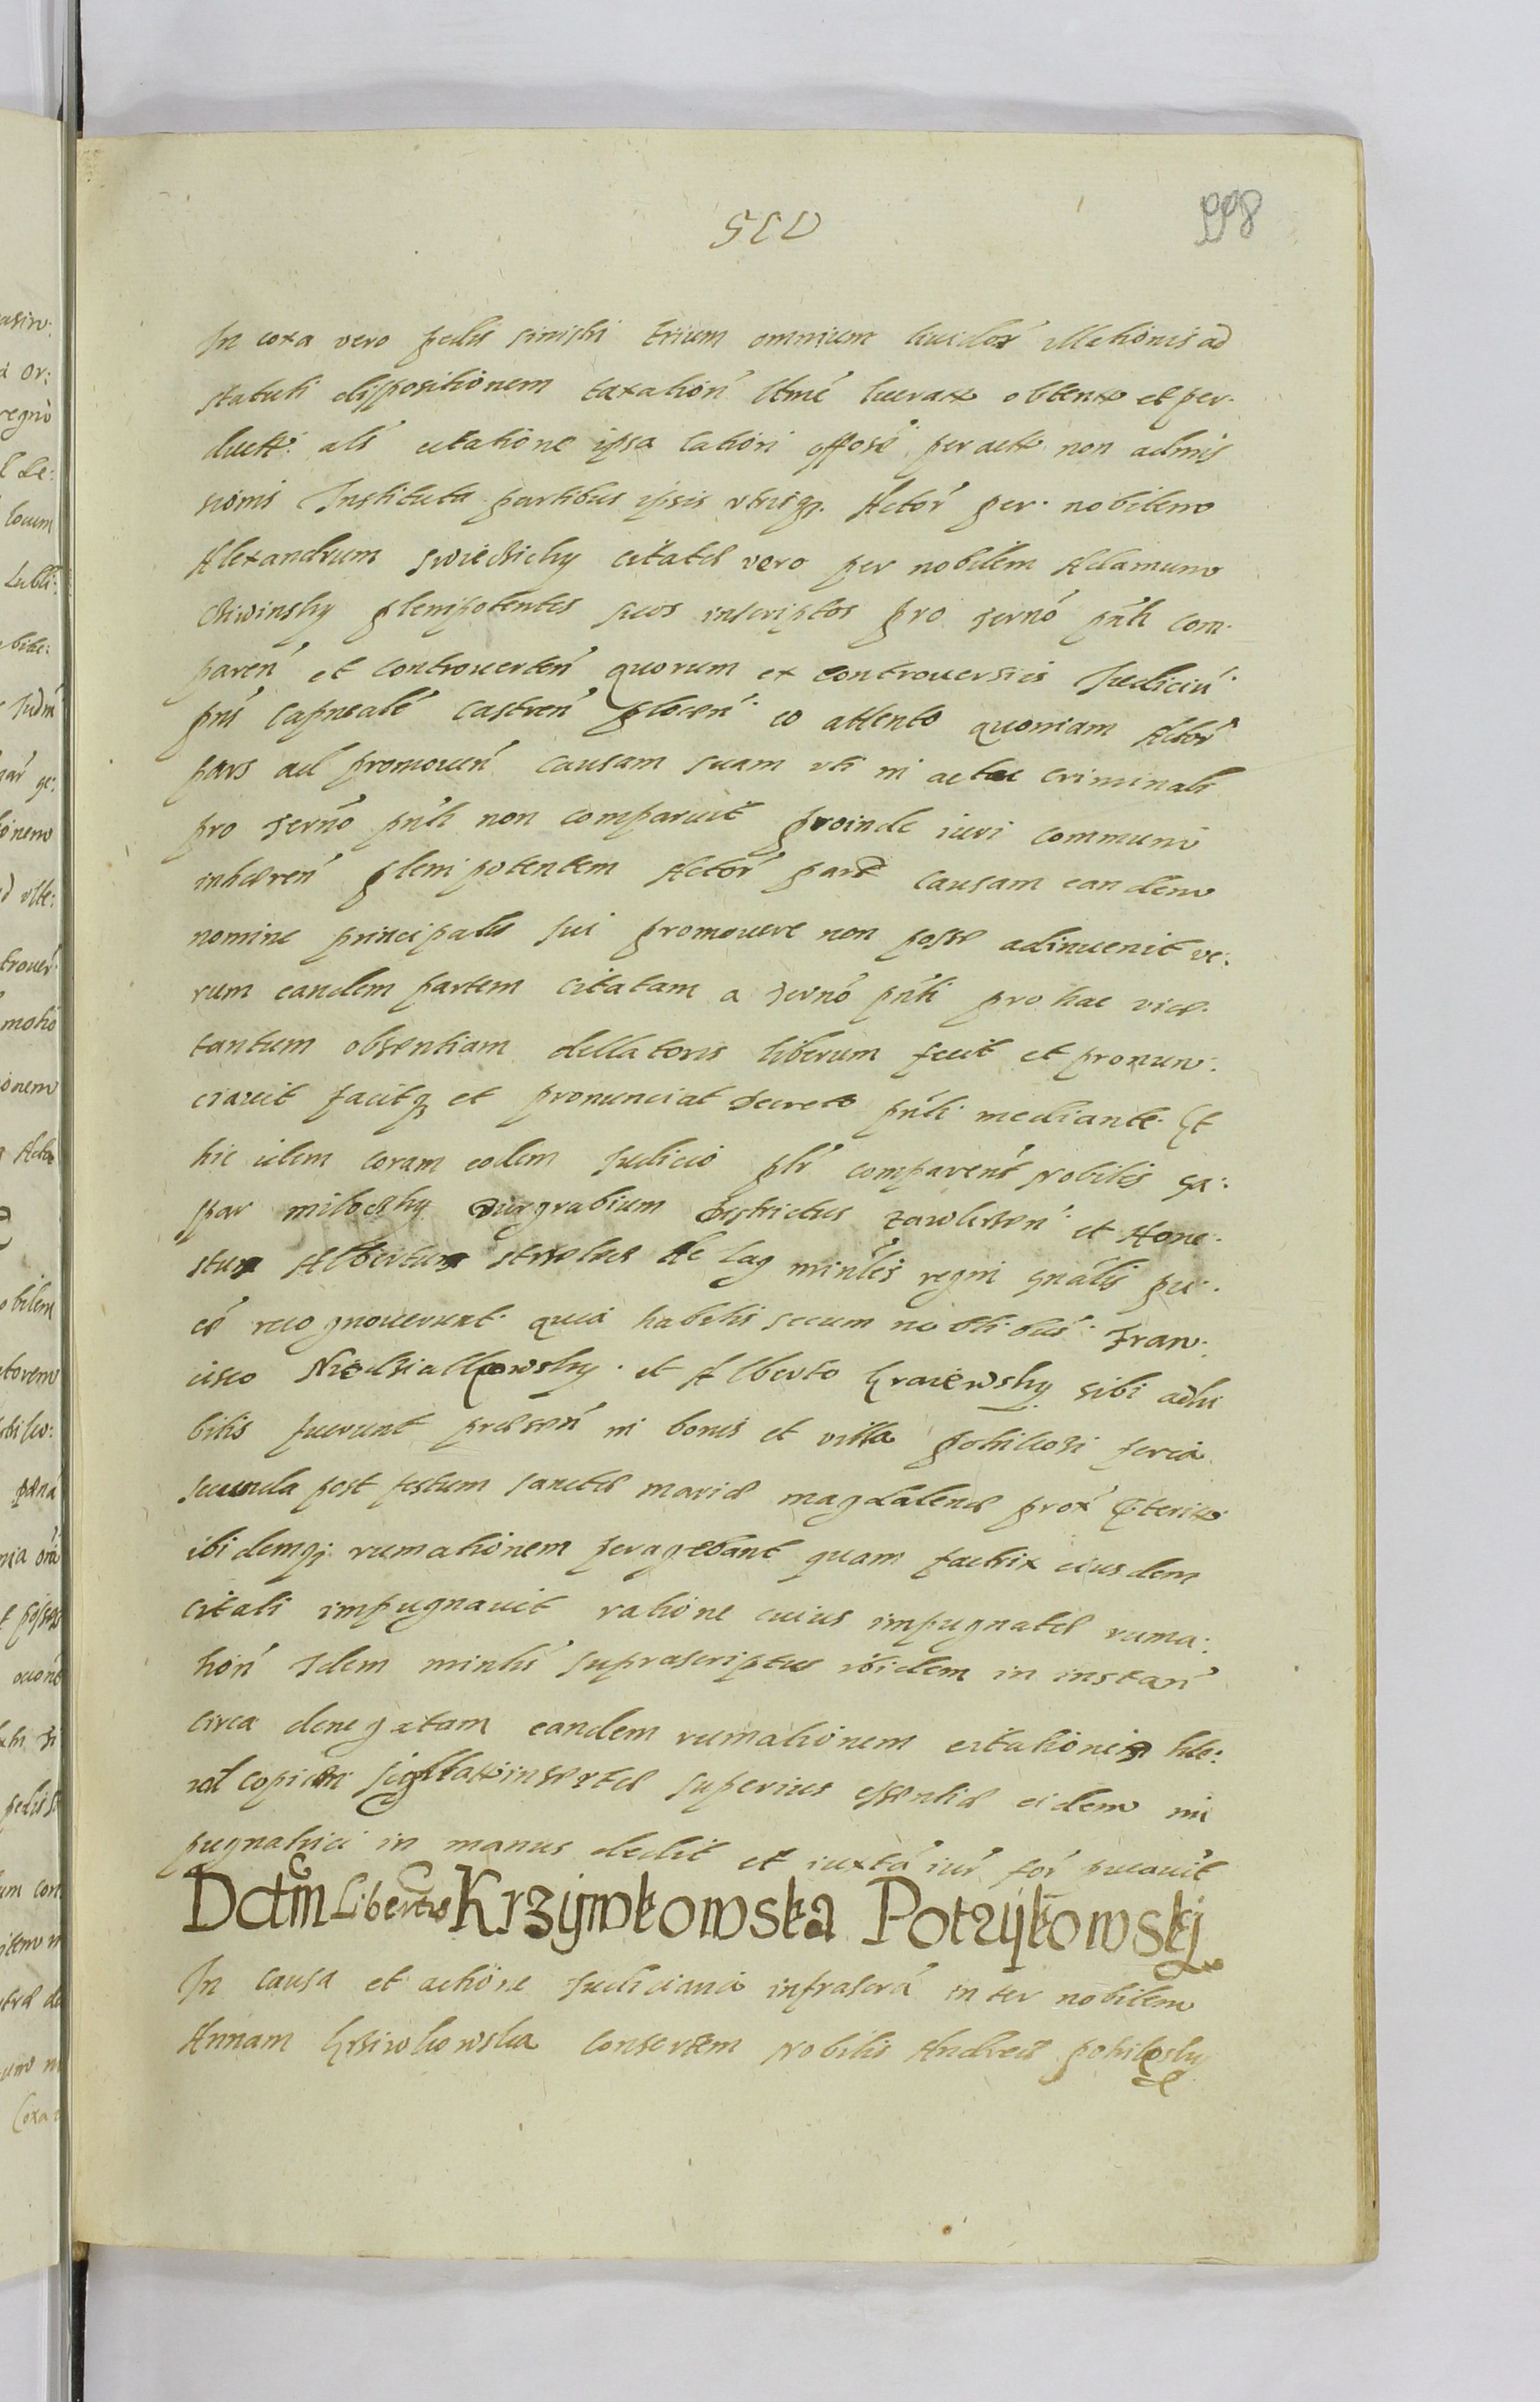 998
In coxa vero pedis sinistri trium omnium liuidor illationis ad
statuti dispositionem taxation lucrat obtent et per.
duct: als citatione ipsa lationi per act non admis
sionis Instituta partibus ipsis utrisq. Actor per nobilem
Alexandrum citatæ vero per nobilem Adamum
plenipotentes suos inscriptos pro termo pnti com.
paren et controuerten quorum ex controuersiis Iudiciu
pns Capneale castren plocen eo attento quoniam Actor
pars ad promouen causam suam uti in actu criminali
pro termo pnti non comparuit proinde iuri communi
inhæren plenipotentem Actor part causam eandem
nomine principalis sui promouere non posse adinuenit ve:
rum eandem partem citatam a termo pnti pro hac vice
tantum obsentiam dellatoris liberum fecit et pronun:
ciauit facitq et pronunciat decreto pnti mediante Et
hic idem coram eodem Iudicio plr comparent Nobilis Ga:
spar burgrabium districtus zawkrzen et Hone:
stum Albertum de Lag minlis regni gnalis pu:
ce recognouerunt quia habitis secum nobilibus Fran:
cisco Niedzialkowsky et Alberto kraiewsky sibi adhi
bitis fuerunt præsen in bonis et villa feria
secunda post festum sanctæ mariæ magdalenæ prox
ibidemq rumationem peragebant quam factrix eiusdem
citati impugnauit ratione cuius impugnatæ ruma:
tion Idem minlis suprascriptus ibidem in instan
circa denegatam eandem rumationem citationis lite:
insertæ superius essentiæ eidem im
pugnatrici in manus dedit et iuxta iur for pucauit
Dctm Libertus Krzywkowska Potrykowskj
In causa et actione Iudiciaria infrascra inter nobilem
Annam krziwkowska consortem Nobilis Andreæ